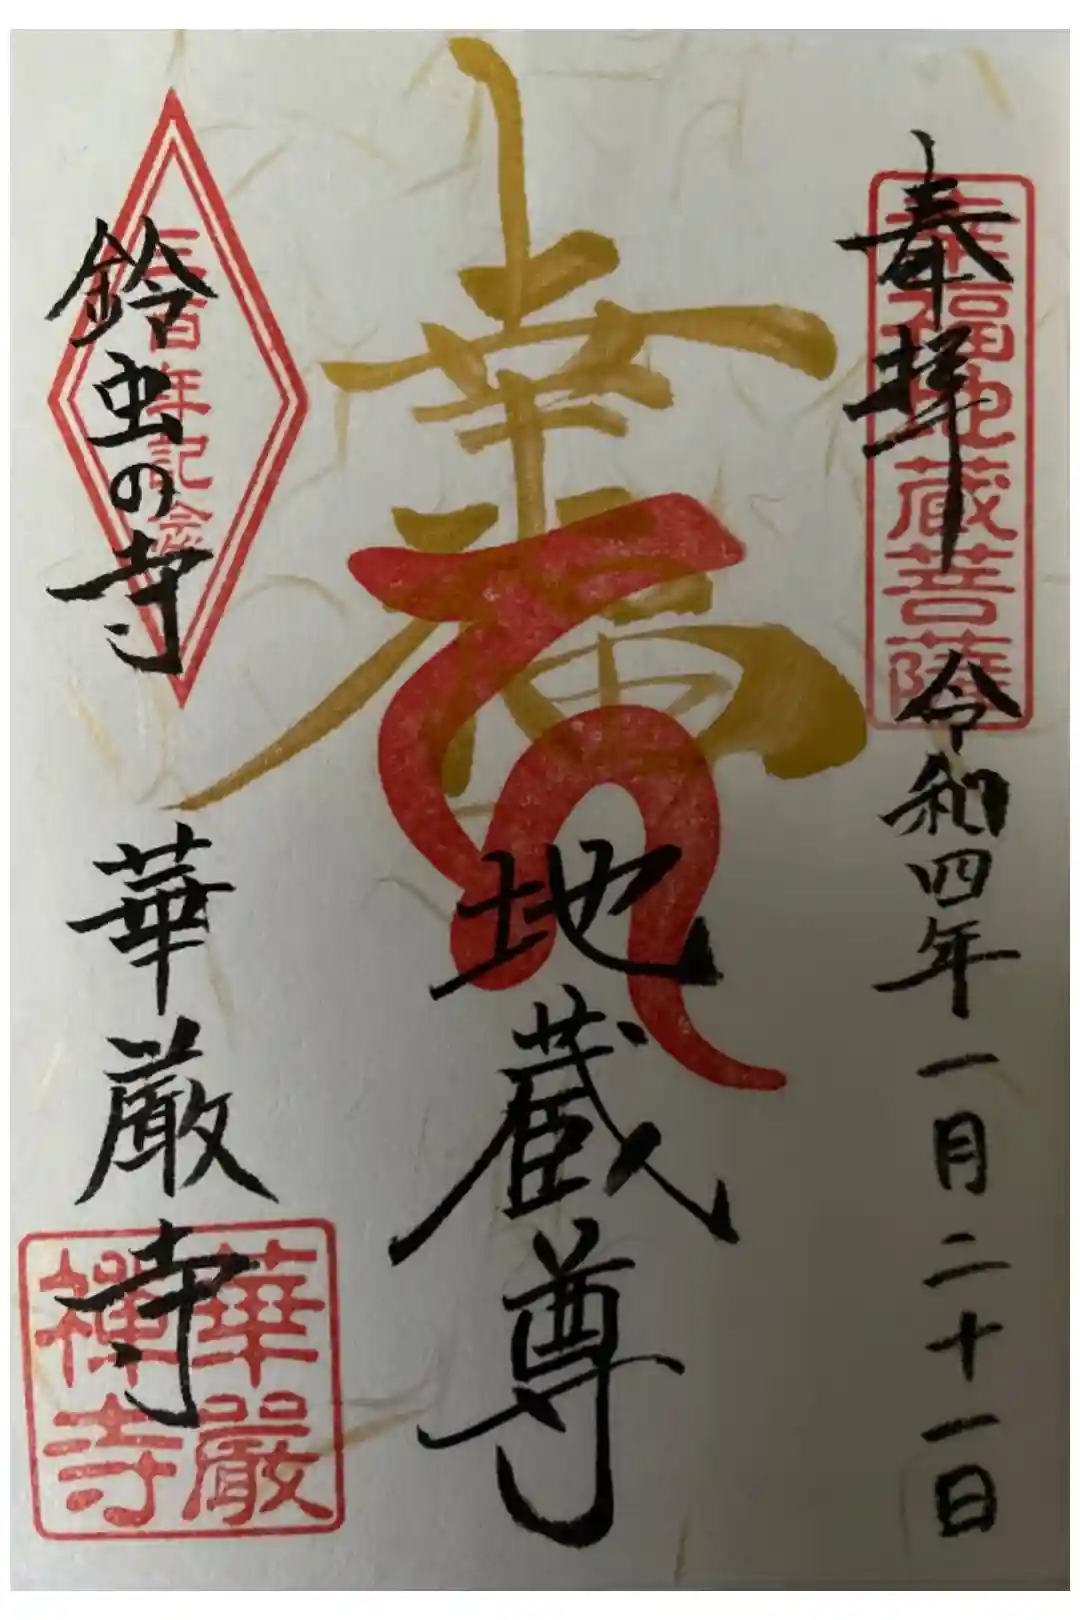 奉拝
令和四年一月二十一日
幸福地蔵菩薩
幸福
地蔵尊
鈴虫の寺
華厳寺
三百年記念
華嚴
禅寺